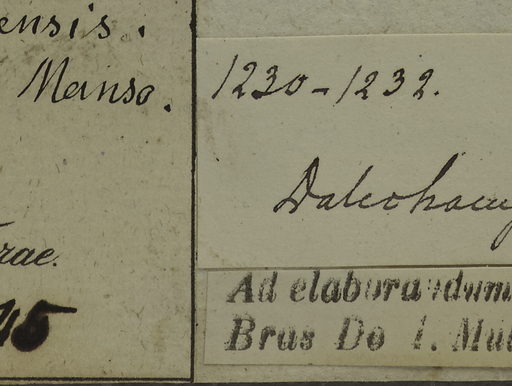 ensis.
Manso.
rae.
45
1230-1232.
Dalechamp
Ad elaborandum
Bras Do 1. Mul